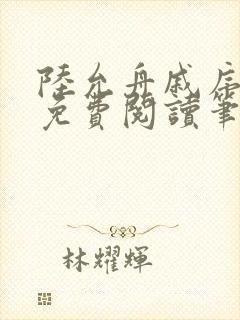 陸允舟戚
免費閱讀筆
林耀輝